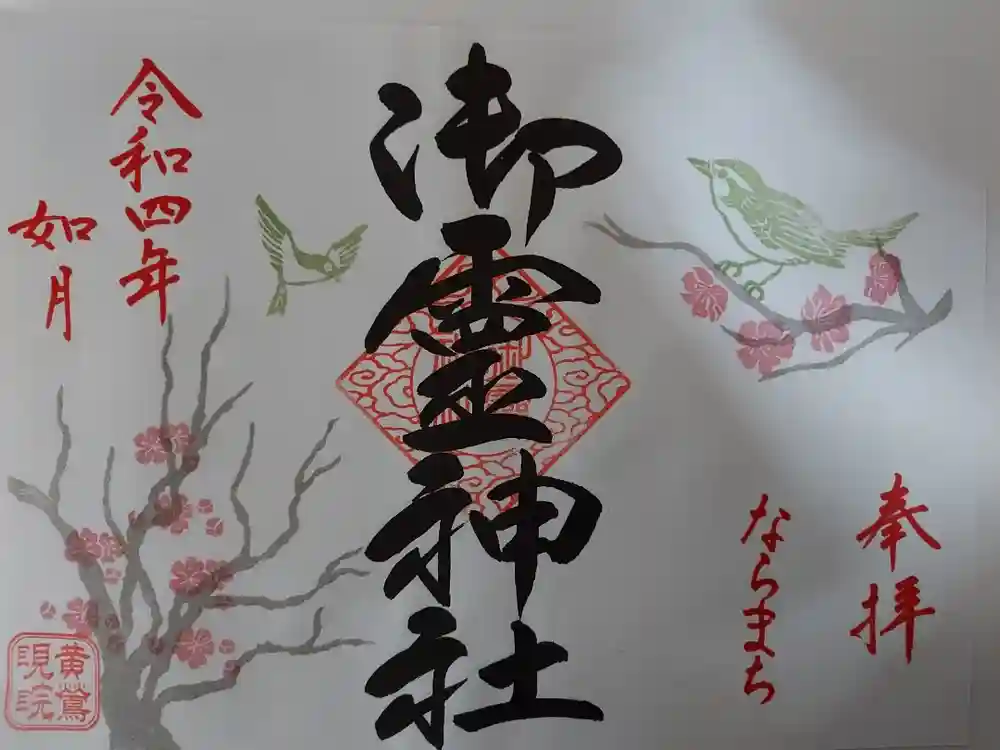 奉拝
ならまち
御霊神社
令和四年
如月
黄鶯
睍睆